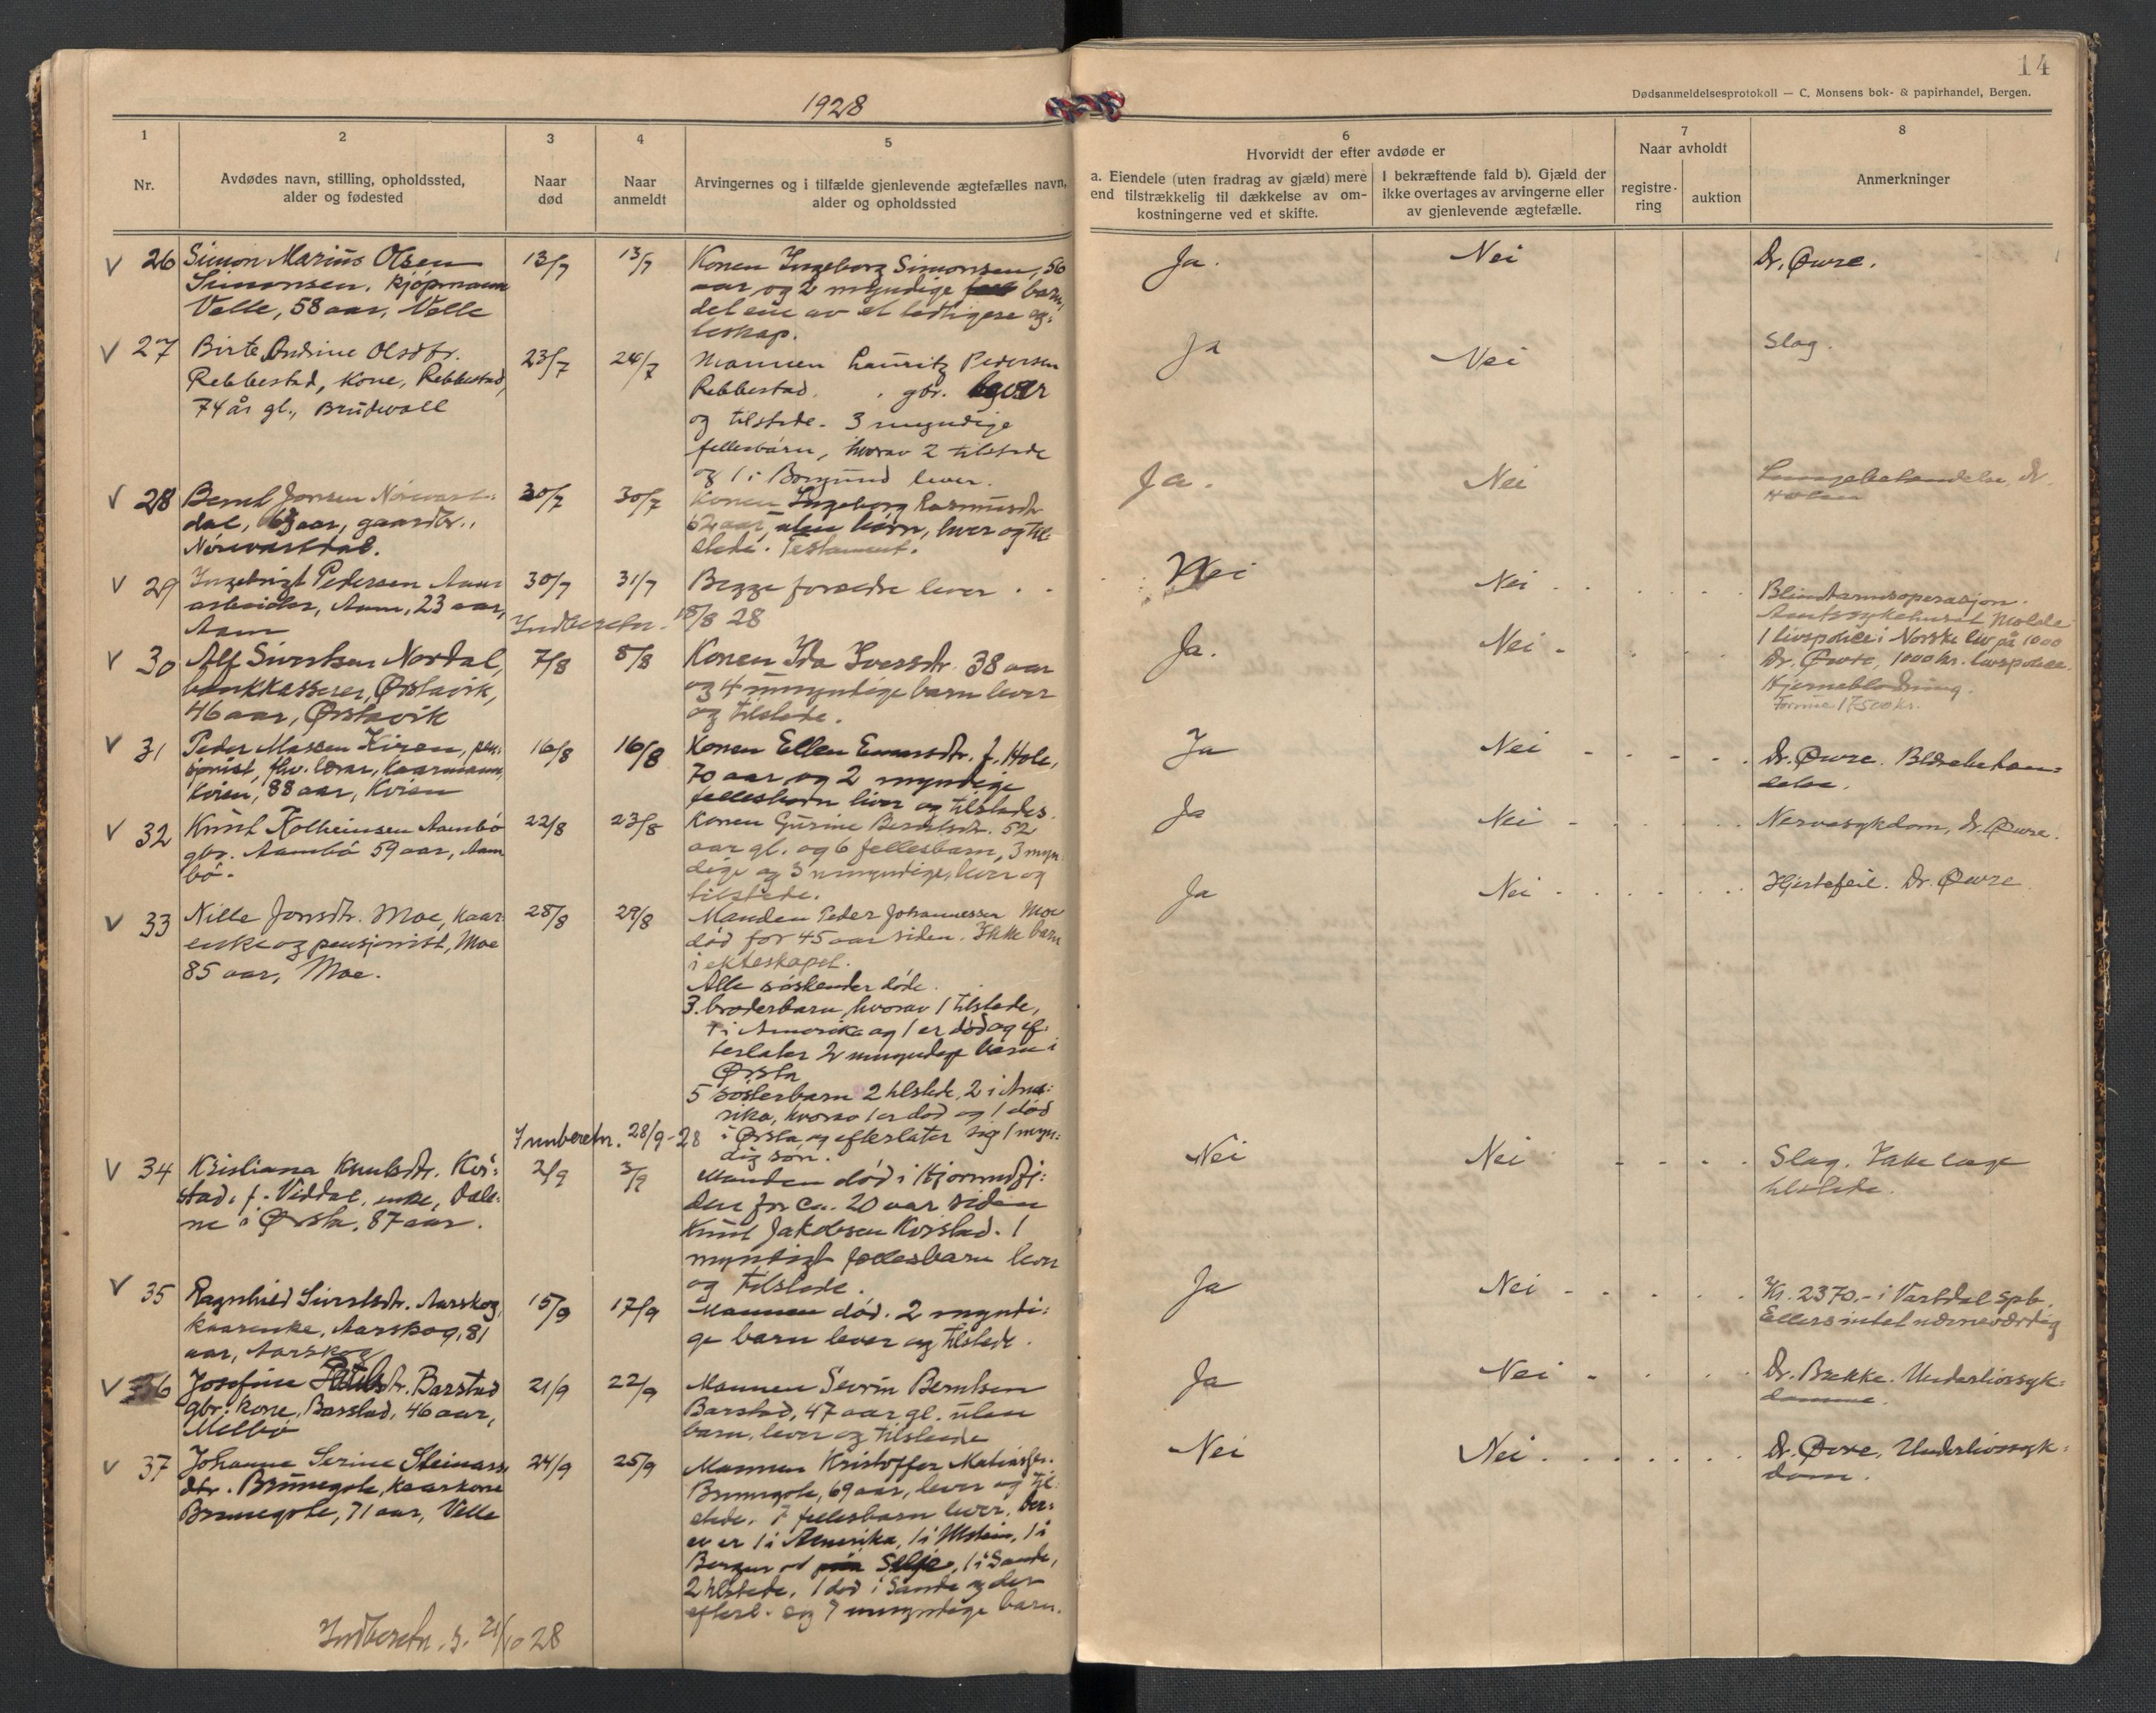 14
Dødsanmeldelsesprotokoll — C. Monsens bok- & papirhandel, Bergen.
1928
1
2
3
4
5
6
7
8
Nr.
Avdødes navn, stilling, opholdssted,
alder og fødested
Naar
død
Naar
anmeldt
Arvingernes og i tilfælde gjenlevende ægtefælles navn,
alder og opholdssted
Hvorvidt der efter avdøde er
a. Eiendele (uten fradrag av gjæld) mere
end tilstrækkelig til dækkelse av om-
kostningerne ved et skifte.
I bekræftende fald b). Gjæld der
ikke overtages av arvingerne eller
av gjenlevende ægtefælle.
Naar avholdt
registre-
ring
auktion
Anmerkninger
V 26 Simon Marius Olsen
Simonsen, kjöpmann
Velle, 58 aar, Velle
13/7
13/7
Konen Ingeborg Simonsen, 56
aar og 2 myndige barn,
det ene av et tidligere eg-
teskap.
Ja.
Nei
Dr. Øvre.
V 27 Birte Andrine Olsdtr.
Rebbestad, kone, Rebbestad,
74 år gl., Brudevoll
23/7
24/7
Mannen Lauritz Pedersen
Rebbestad, gbr. lever
og tilstede. 3 myndige
fellesbarn, hvorav 2 tilstede
og 1 i Borgund lever.
Ja
Nei
Slag.
V 28 Bernt Jonsen Nórevart-
dal, aar, gaardbr.,
Nórevartdal.
30/7
30/7
Konen Ingeborg Rasmusdtr
62 aar, uten börn, lever og til-
stede. Testament.
Ja.
Nei
V 29 Ingebrigt Pedersen Aam
arbeider, Aam, 23 aar,
Aam
30/7
31/7
Begge foreldre lever
Indberetn. /8 28
Nei
Nei
Blindtarmsoperasjon.
Amtssykehuset Molde
1 livspolice i Norske liv på 1000
V 30 Alf Sivertsen Nordal,
bankkasserer, Ørstavik,
46 aar, Ørstavik
7/8
8/8
Konen Ida Iversdtr. 38 aar
og 4 umyndige barn lever
og tilstede.
Ja.
Nei
Dr. Øvre, 1000 kr. livspolice.
Hjerneblödning.
Formue 17500 kr.
V 31 Peder Massen Kiren, pen-
sjonist, fhv. lærer, kaarmann,
Kvien, 88 aar, Kvien
16/8
16/8
Konen Ellen Einarsdtr. f. Hole,
70 aar og 2 myndige
fellesbarn lever og tilstedes.
Ja
Nei
Dr. Øvre. Blærebetæn-
delse.
V 32 Knut Kolbeinsen Aambö
gbr. Aambö 59 aar, Aam
bö.
22/8
23/8
Konen Gurine Berdtsdtr. 52
aar gl. og 6 fellesbarn, 3 myn-
dige og 3 umyndige, lever og
tilstede.
Ja
Nei
Nervesykdom, Dr. Øvre.
V 33 Nille Jonsdtr. Moe, kaar-
enke og pensjonist, Moe
85 aar, Moe.
28/8
29/8
Manden Peder Johannessen Moe
död for 45 aar siden. Ikke barn
i ekteskapet.
Alle söskender döde.
3 broderbarn, hvorav 1 tilstede,
1 i Amerika og 1 er död og ef-
terlater 2 umyndige barn i
Ørsta
5 sösterbarn 2 tilstede, 2 i Ame-
rika, hvorav 1 er död og 1 död
i Ørsta og efterlater sig 1 myn-
dig sön.
Innberetn. 28/9-28
Ja
Nei
Hjertefeil. Dr. Øvre
V 34 Kristiana Knutsdtr. Kvi-
stad, f. Viddal, enke, Dale-
ne i Ørsta, 87 aar.
2/9
3/9
Manden död i Hjörundfj-
den for ca. 20 aar siden
Knut Jakobsen Kvistad. 1
myndigt fellesbarn lever
og tilstede.
Nei
Nei
Slag. Ikke læge
tilstede.
V 35 Ragnhild Sivertsdtr. Aarskog,
kaarenke, Aarskog, 81
aar, Aarskog
15/9
17/9
Mannen död. 2 myndi-
ge barn lever og tilstede.
Ja
Nei
Kr. 2370.- i Vartdal spb.
Ellers intet nævneværdig
V 36 Josefine dtr. Barstad
gbr. kone, Barstad, 46 aar,
Melbö
21/9
22/9
Mannen Sevrin Berntsen
Barstad, 47 aar gl. uten
barn, lever og tilstede
Ja
Nei
Dr. Brekke. Underlivssyk-
domme.
V 37 Johanne Serine Steinars-
dtr. Brunegote, kaarkone
Brunegote, 71 aar, Velle
24/9
25/9
Mannen Kristoffer Matiassen
Brunegote, 69 aar, lever og til-
stede. 7 fellesbarn lever, der-
av er 1 i Amerika, 1 i Ulstein, 1 i
Bergen Selje, 1 i Sande,
2 tilstede. 1 död i Sande og der
efterl. sig 7 umyndige barn.
Nei
Nei
Dr. Øvre, Underlivssyk-
dom.
Indberetn. s. 21/10 28